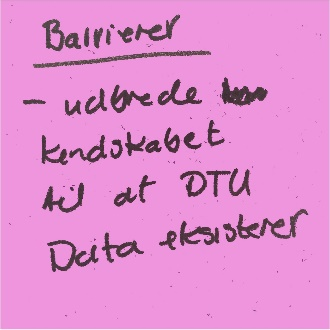 Barrierer
- udbrede
kendskabet
til at DTU
Data eksisterer